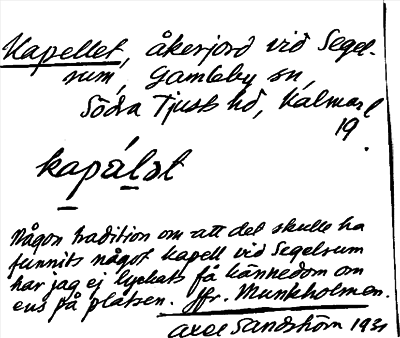 Kapellet, åkerjord vid Segel-
rum, Gamleby sn,
Södra Tjusts hd, Kalmar l
19.
kapälət
Någon tradition om att det skulle ha
funnits något kapell vid Segelrum
har jag ej lyckats få kännedom om
ens på platsen. Jfr. Munkholmen.
Axel Sandström 1931